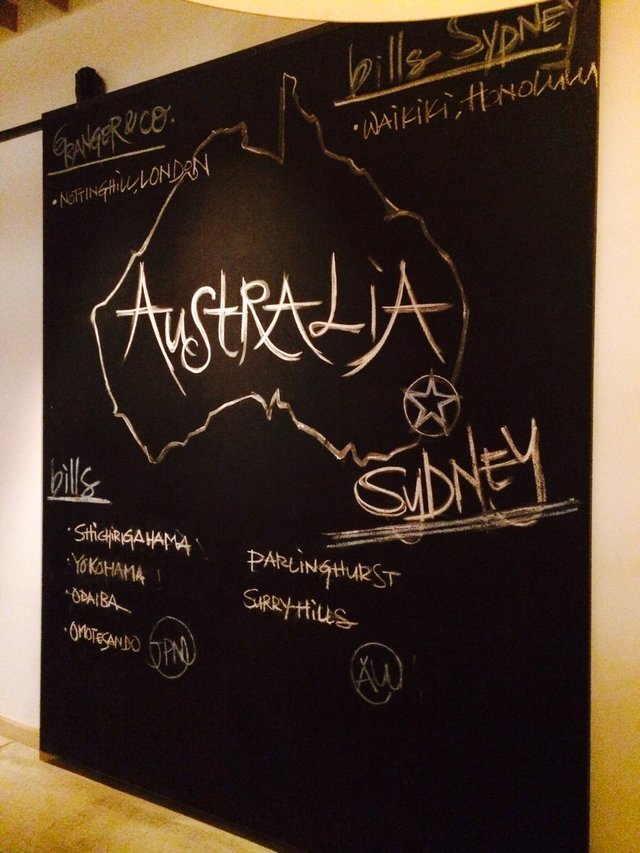 bills Sydney
• WAIKIKI, HONOLULU
GRANGER & CO.
• NOTTINGHILL, LONDON
AUStRALiA
SyDNEY
bills
• SHICHIRIGAHAMA
• YOKOHAMA
• ODAIBA
• OMOTESANDO
JPN
DARLINGHURST
SURRY HiLLS
AU